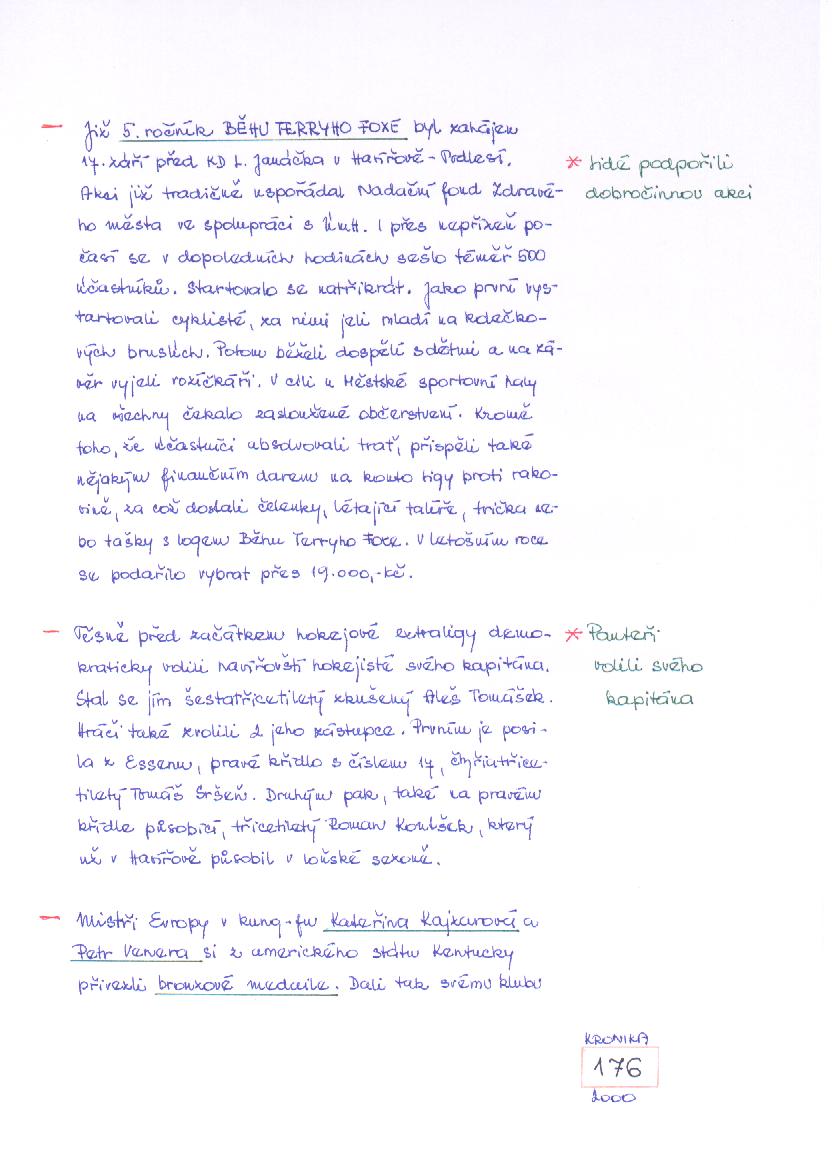 – Již 5. ročník BĚHU TERRYHO FOXE byl zahájen
17. září před KD L. Janáčka v Havířově-Podlesí.
* Lidé podpořili
Akci již tradičně uspořádal Nadační fond Zdravé-
dobročinnou akci
ho města ve spolupráci s ÚmH. I přes nepřízeň po-
časí se v dopoledních hodinách sešlo téměř 500
účastníků. Startovalo se natřikrát. Jako první vys-
tartovali cyklisté, za nimi jeli mladí na kolečko-
vých bruslích. Potom běželi dospělí s dětmi a na zá-
věr vyjeli vozíčkáři. V cíli u Městské sportovní haly
na všechny čekalo zasloužené občerstvení. Kromě
toho, že účastníci absolvovali trať, přispěli také
nějakým finančním darem na konto Ligy proti rako-
vině, za což dostali čelenky, létající talíře, trička ne-
bo tašky s logem Běhu Terryho Foxe. V letošním roce
se podařilo vybrat přes 19.000,-kč.
– Těsně před začátkem hokejové extraligy demo-
* Panteři
kraticky volili havířovští hokejisté svého kapitána.
volili svého
Stal se jím šestatřicetiletý zkušený Aleš Tomášek.
kapitána
Hráči také zvolili 2 jeho zástupce. Prvním je posi-
la z Essenu, pravé křídlo s číslem 17, čtyřiatřice-
tiletý Tomáš Sršeň. Druhým pak, také na pravém
křídle působící, třicetiletý Roman Kontšek, který
už v Havířově působil v loňské sezoně.
– Mistři Evropy v kung-fu Kateřina Kajzarová a
Petr Venera si z amerického státu Kentucky
přivezli bronzové medaile. Dali tak svému klubu
KRONIKA
176
2000